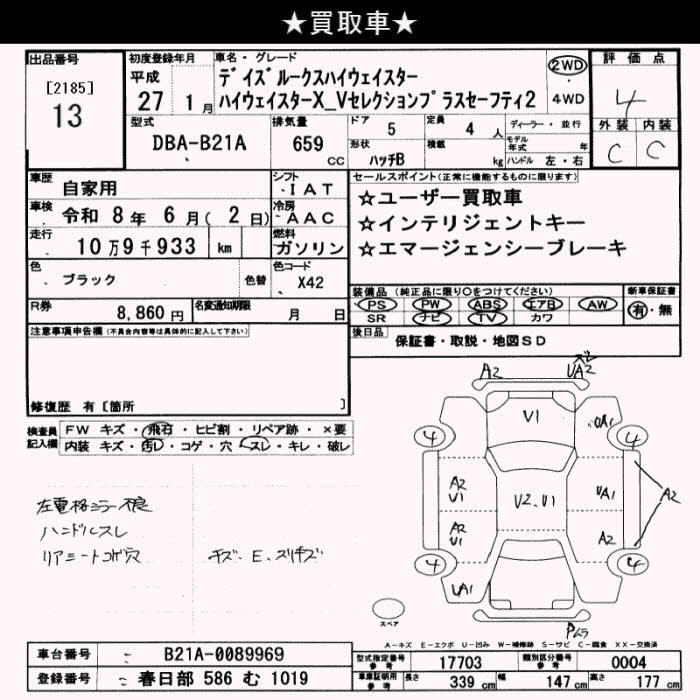 ★買取車★
出品番号 初度登録年月 車名・グレード 評価点
[2185] 平成 デイズルークスハイウェイスター 2WD 4
13 27 1月 ハイウェイスターX_Vセレクションプラスセーフティ2 4WD
型式 排気量 ドア 5 定員 4 人 ディーラー・並行 外装 内装
DBA-B21A 659 cc 形状 ハッチB 積載 kg モデル年式 年 ハンドル 左・右 C C
車歴 自家用 シフト IAT セールスポイント(正常に機能するものに限ります)
車検 令和 8年 6月(2日) 冷房 AAC ☆ユーザー買取車
走行 10万9千933 km 燃料 ガソリン ☆インテリジェントキー
☆エマージェンシーブレーキ
色 ブラック 色替 色コード X42
装備品(純正品に限り○をつけてください) 新車保証書
R券 8,860円 名変通知期限 月 日 PS PW ABS エアB AW 有・無
SR ナビ TV カワ
注意事項申告欄(不具合内容等は具体的に記入して下さい) 後日品 保証書・取説・地図SD
修復歴 有 [箇所 ]
検査員記入欄 FW キズ・飛石・ヒビ割・リペア跡・×要
内装 キズ・汚レ・コゲ・穴・スレ・キレ・破レ
A2 スレ UA2
V1 UA1
4 4
A2 V1 V2.V1 UA1 A2
A2 V1 A2
4 4
UA1
左電格ミラー不良
ハンドルスレ
リアシートコゲ穴 キズ、E、スリキズ
スペア
Pムラ
A-キズ E-エクボ U-凹み W-補修跡 S-サビ C-腐食 XX-交換済
車台番号 B21A-0089969 型式指定番号 参考 17703 類別区分番号 参考 0004
登録番号 春日部 586 む 1019 車庫証明用 参考 長さ 339 cm 幅 147 cm 高さ 177 cm